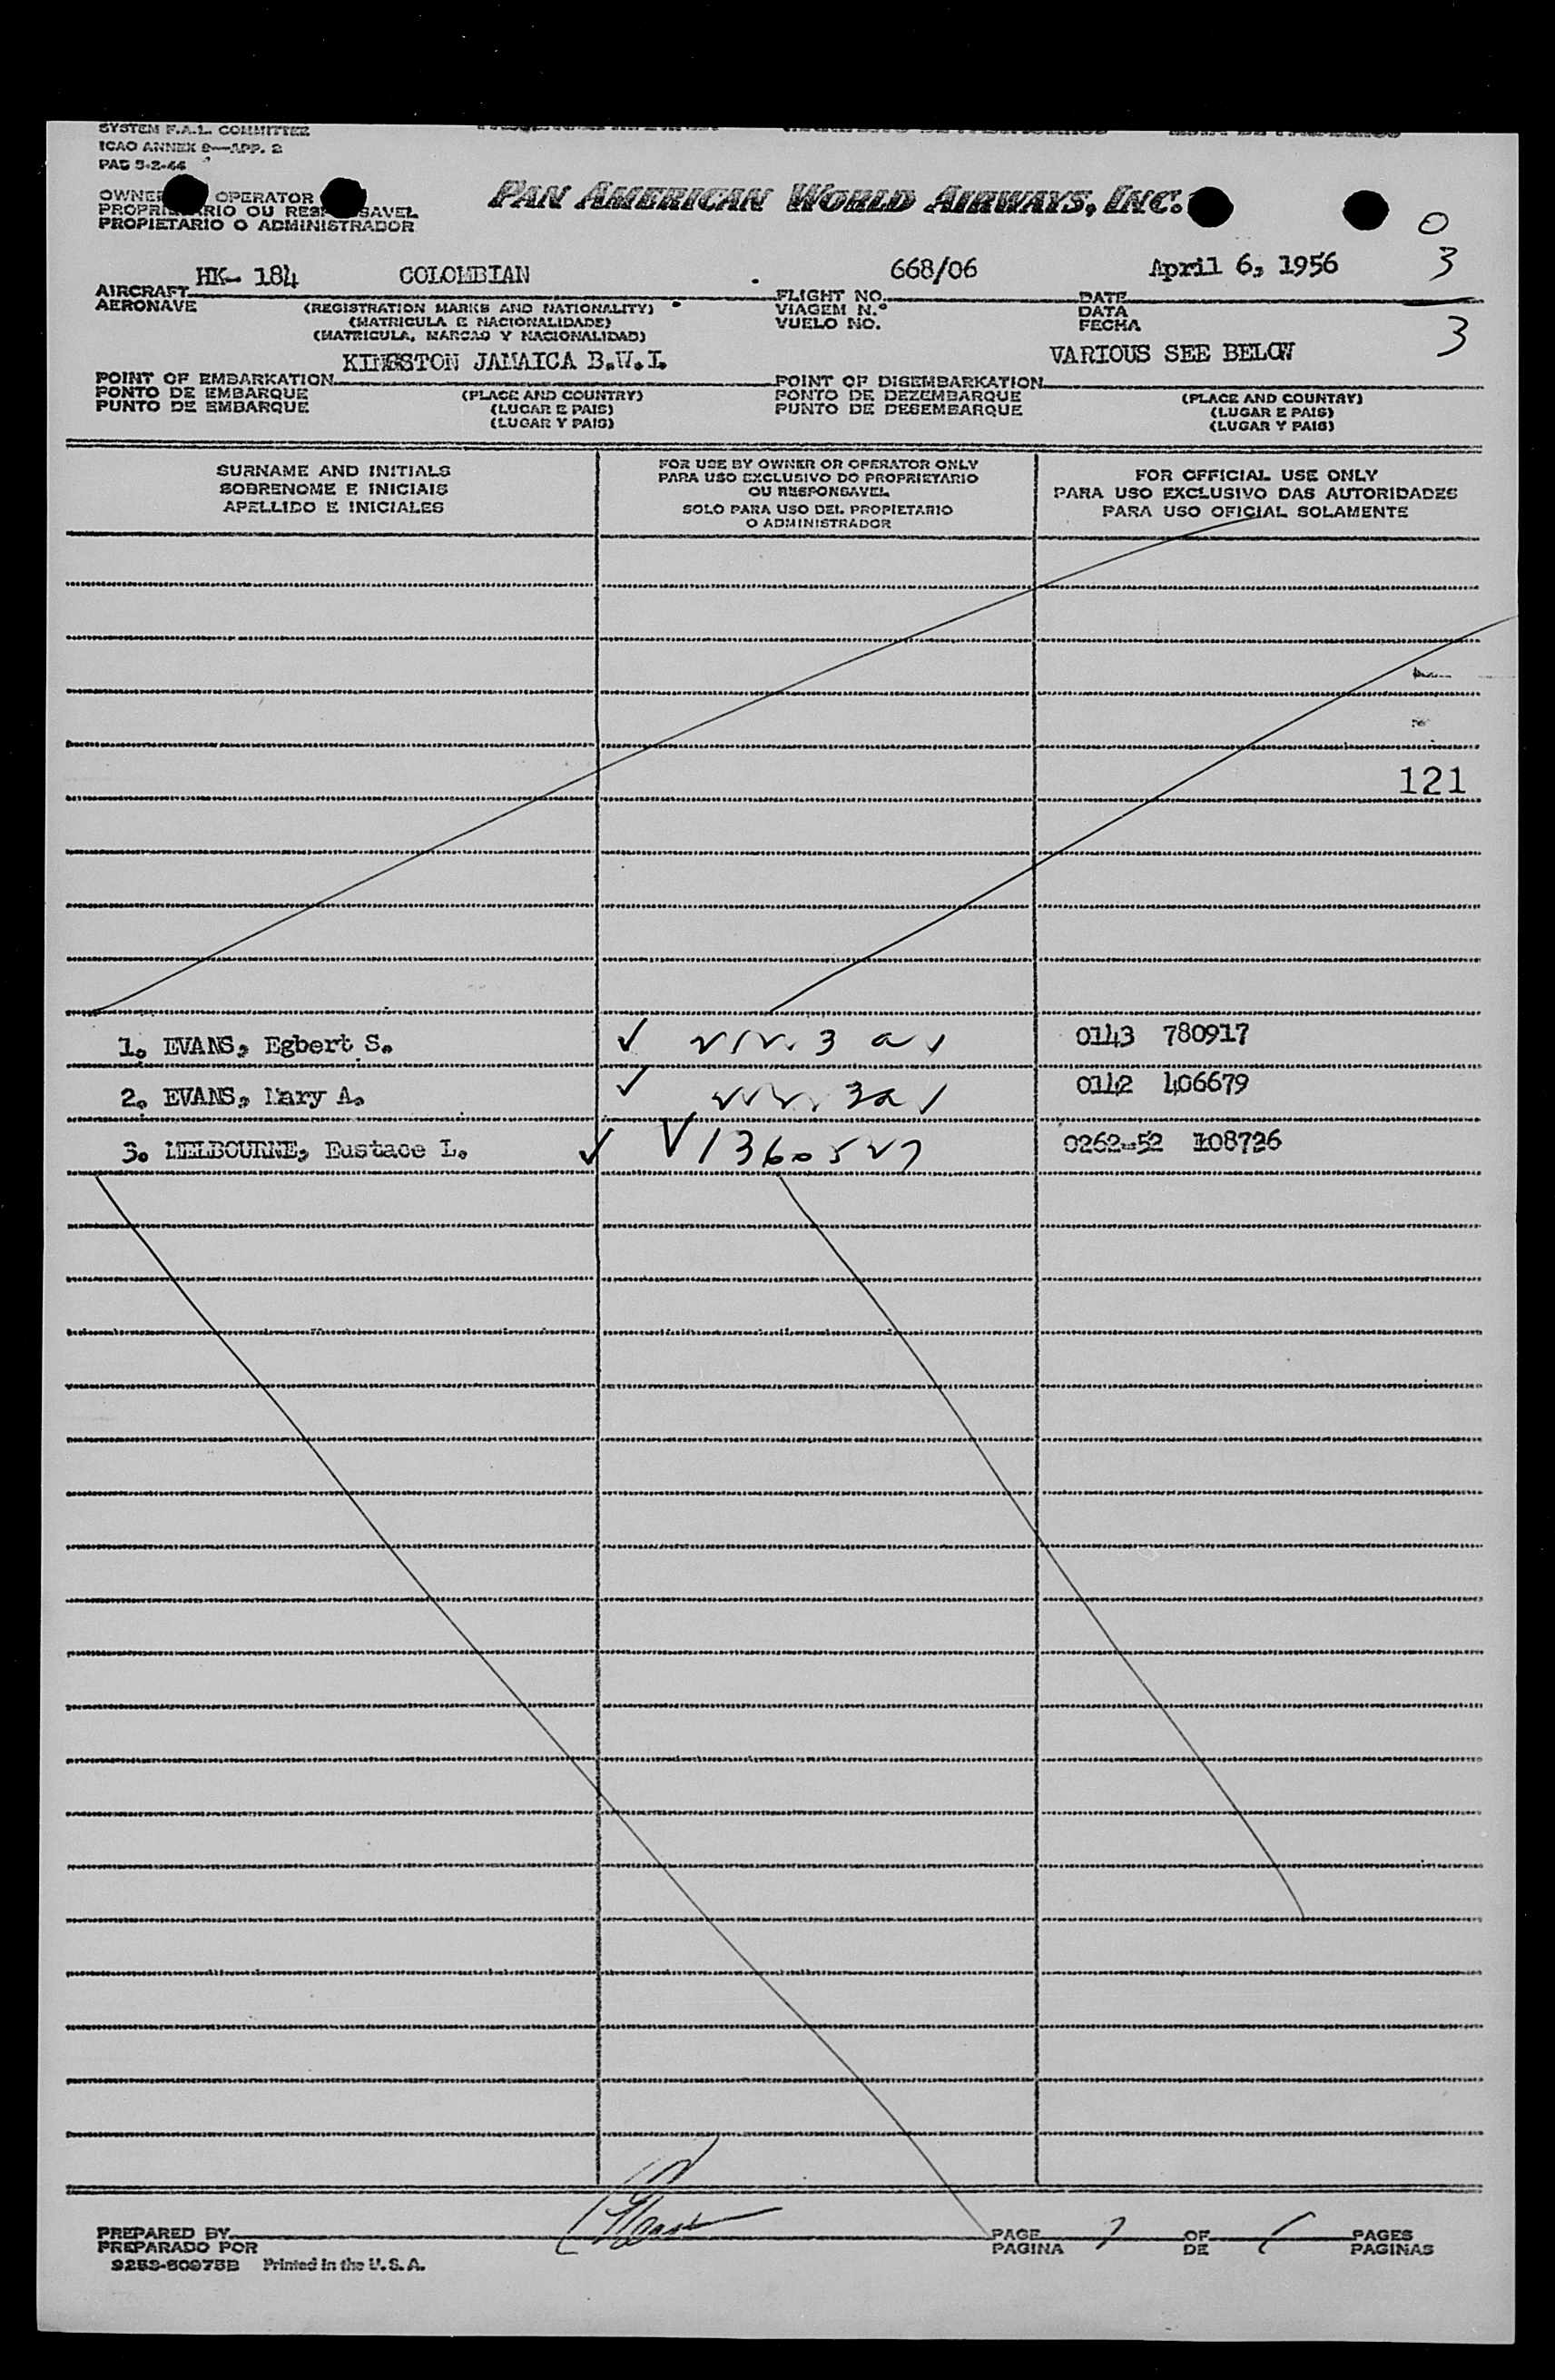 SYSTEM F.A.L. COMMITTEE
ICAO ANNEX 9—APP. 2
OPERATOR
PROPIETARIO O ADMINISTRADOR
PAN AMERICAN WORLD AIRWAYS, INC.
0
3
3
HK- 184 COLOMBIAN 668/06 April 6, 1956
AIRCRAFT FLIGHT NO. DATE
AERONAVE (REGISTRATION MARKS AND NATIONALITY) VIAGEM N.° DATA
(MATRICULA E NACIONALIDADE) VUELO NO. FECHA
(MATRICULA, MARCAS Y NACIONALIDAD)
KINGSTON JAMAICA B.W.I. VARIOUS SEE BELOW
POINT OF EMBARKATION POINT OF DISEMBARKATION
PONTO DE EMBARQUE (PLACE AND COUNTRY) PONTO DE DEZEMBARQUE (PLACE AND COUNTRY)
PUNTO DE EMBARQUE (LUGAR E PAIS) PUNTO DE DESEMBARQUE (LUGAR E PAIS)
(LUGAR Y PAIS) (LUGAR Y PAIS)
SURNAME AND INITIALS
SOBRENOME E INICIAIS
APELLIDO E INICIALES
FOR USE BY OWNER OR OPERATOR ONLY
PARA USO EXCLUSIVO DO PROPRIETARIO
OU RESPONSAVEL
SOLO PARA USO DEL PROPIETARIO
O ADMINISTRADOR
FOR OFFICIAL USE ONLY
PARA USO EXCLUSIVO DAS AUTORIDADES
PARA USO OFICIAL SOLAMENTE
121
1. EVANS, Egbert S. 0143 780917
2. EVANS, Mary A. 0142 406679
3. MELBOURNE, Eustace L. 0262-52 108726
PREPARED BY PAGE OF PAGES
PREPARADO POR PAGINA DE PAGINAS
9253-50975B Printed in the U.S.A.